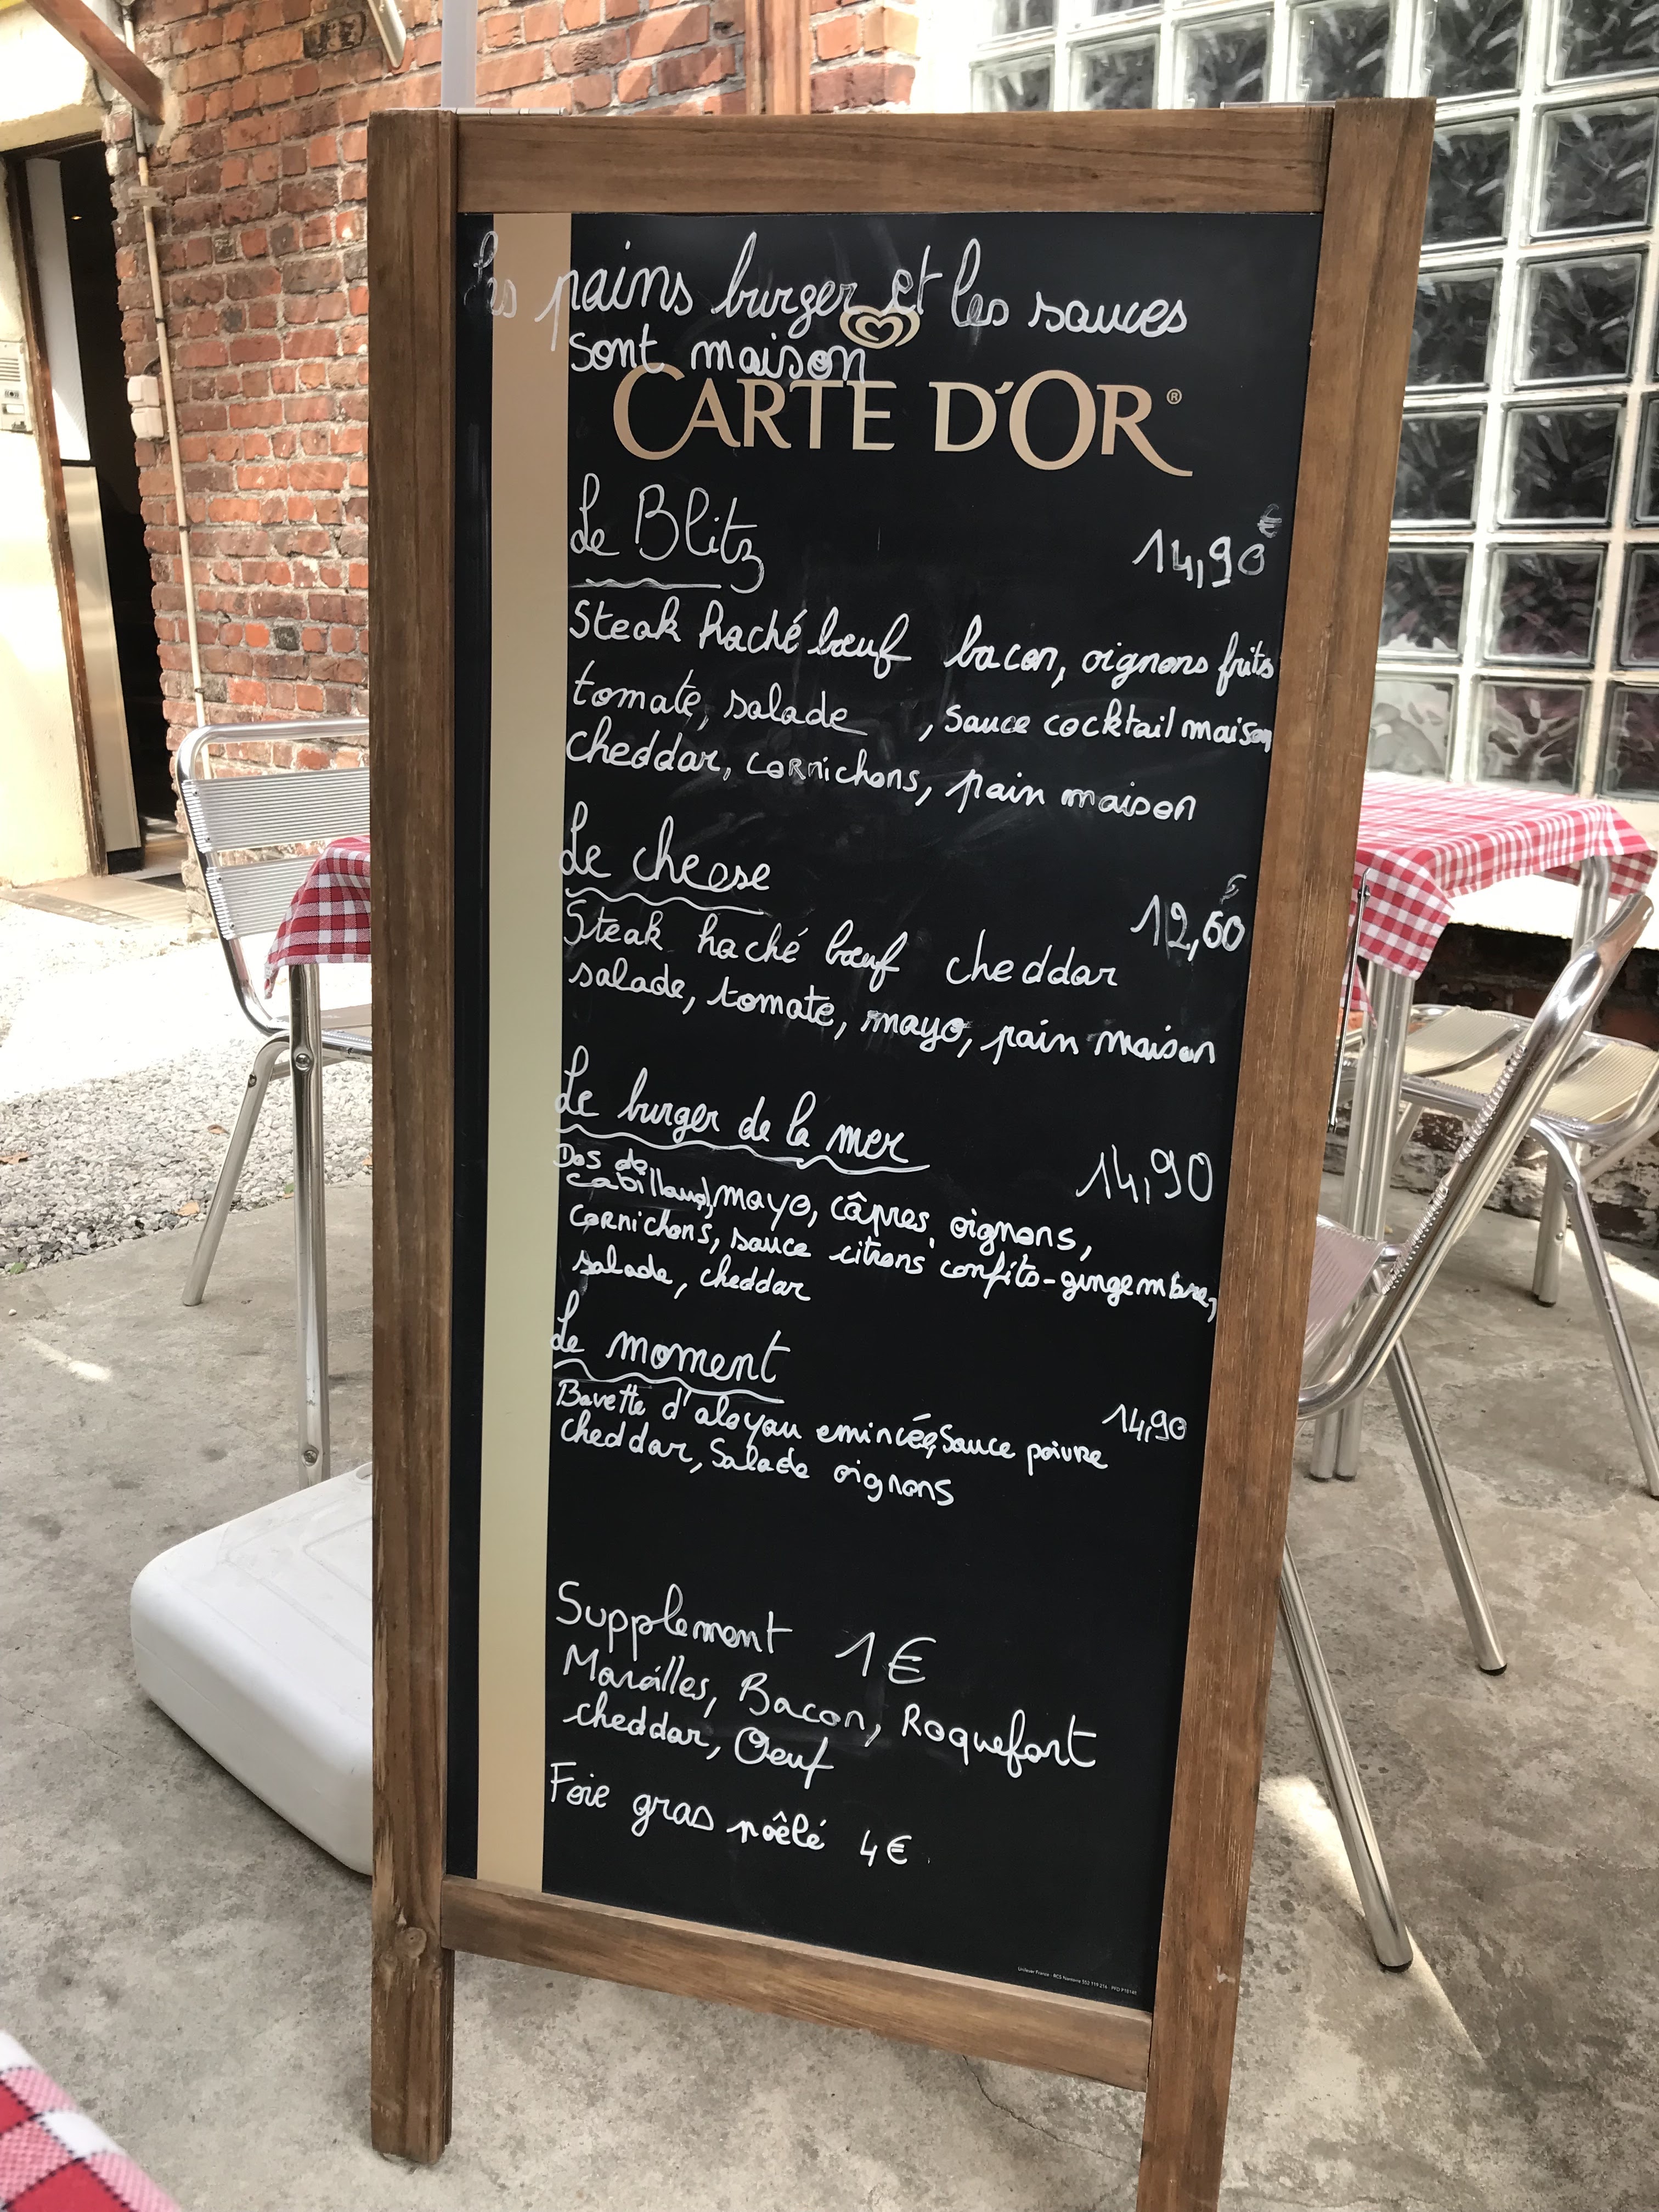 les pains burger et les sauces
sont maison
CARTE D'OR®
Le Blitz 14,90€
Steak haché bœuf bacon, oignons frits
tomate, salade , sauce cocktail maison
cheddar, cornichons, pain maison
Le cheese
12,60€
Steak haché bœuf cheddar
salade, tomate, mayo, pain maison
Le burger de la mer
14,90
Dos de
cabillaud, mayo, câpres, oignons,
cornichons, sauce citrons confits-gingembre,
salade, cheddar
Le moment
14,90
Bavette d'aloyau emincée, Sauce poivre
cheddar, Salade oignons
Supplement 1€
Maroilles, Bacon, Roquefort
cheddar, Oeuf
Foie gras poêlé 4€